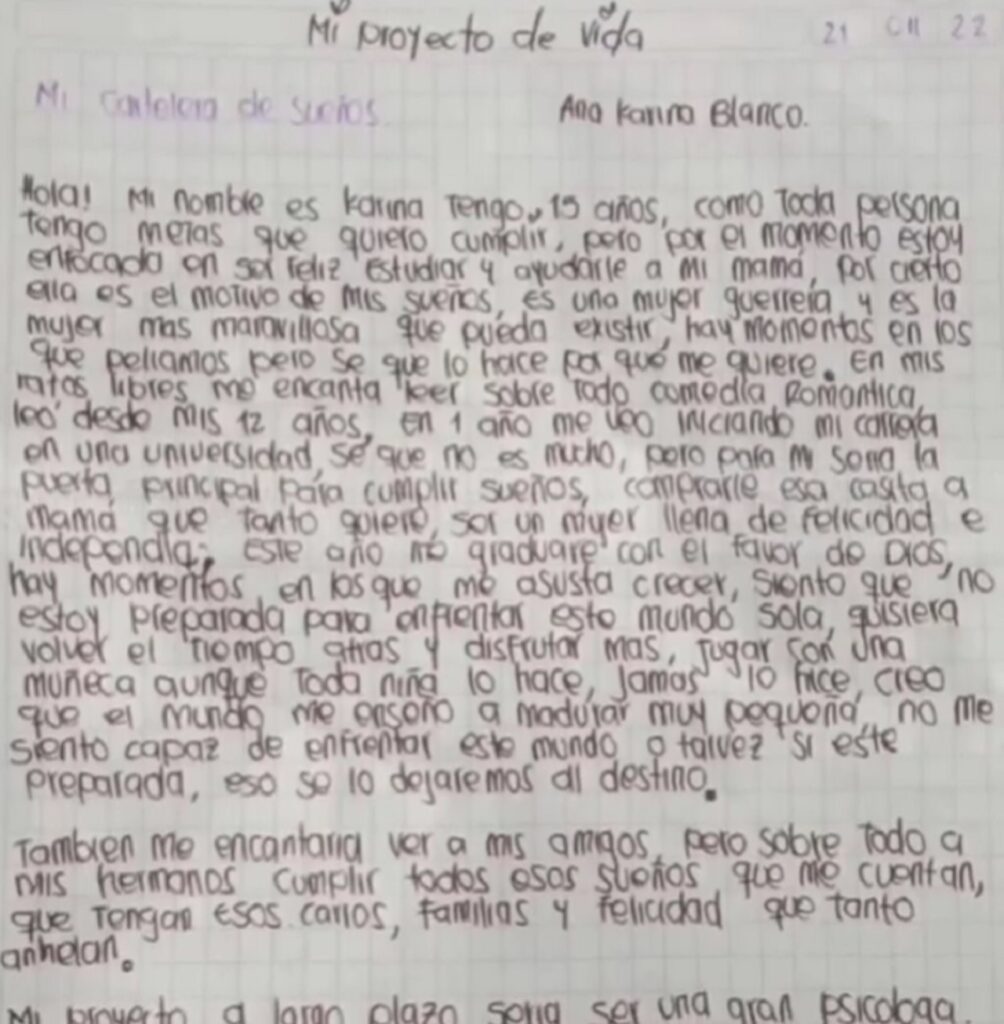 Mi proyecto de vida
21 011 22
Mi cartelera de sueños
Ana Karina Blanco.
Hola! Mi nombre es Karina Tengo 15 años, como Toda persona
Tengo metas que quiero cumplir, pero por el momento estoy
enfocada en ser feliz estudiar y ayudarle a mi mamá, por cierto
ella es el motivo de mis sueños, es una mujer guerrera y es la
mujer mas maravillosa que pueda existir, hay momentos en los
que peliamos pero se que lo hace por que me quiere. En mis
ratos libres me encanta leer sobre Todo comedia Romantica,
leo desde mis 12 años, en 1 año me veo iniciando mi carrera
en una universidad, se que no es mucho, pero para mi seria la
puerta principal para cumplir sueños, comprarle esa casita a
mamá que Tanto quiere, ser un mujer llena de felicidad e
independia, Este año me graduare con el favor de Dios,
hay momentos en los que me asusta crecer, siento que no
estoy preparada para enfrentar este mundo sola, quisiera
volver el Tiempo atras y disfrutar mas, jugar con una
muñeca aunque Toda niña lo hace, jamas lo hice, creo
que el mundo me enseño a madurar muy pequeña, no me
siento capaz de enfrentar este mundo o talvez si este
preparada, eso se lo dejaremos al destino.
Tambien me encantaria ver a mis amigos pero sobre Todo a
mis hermanos cumplir todos esos sueños que me cuentan,
que Tengan Esos carros, familias y felicidad que tanto
anhelan.
Mi proyecto a largo plazo seria ser una gran psicologa.